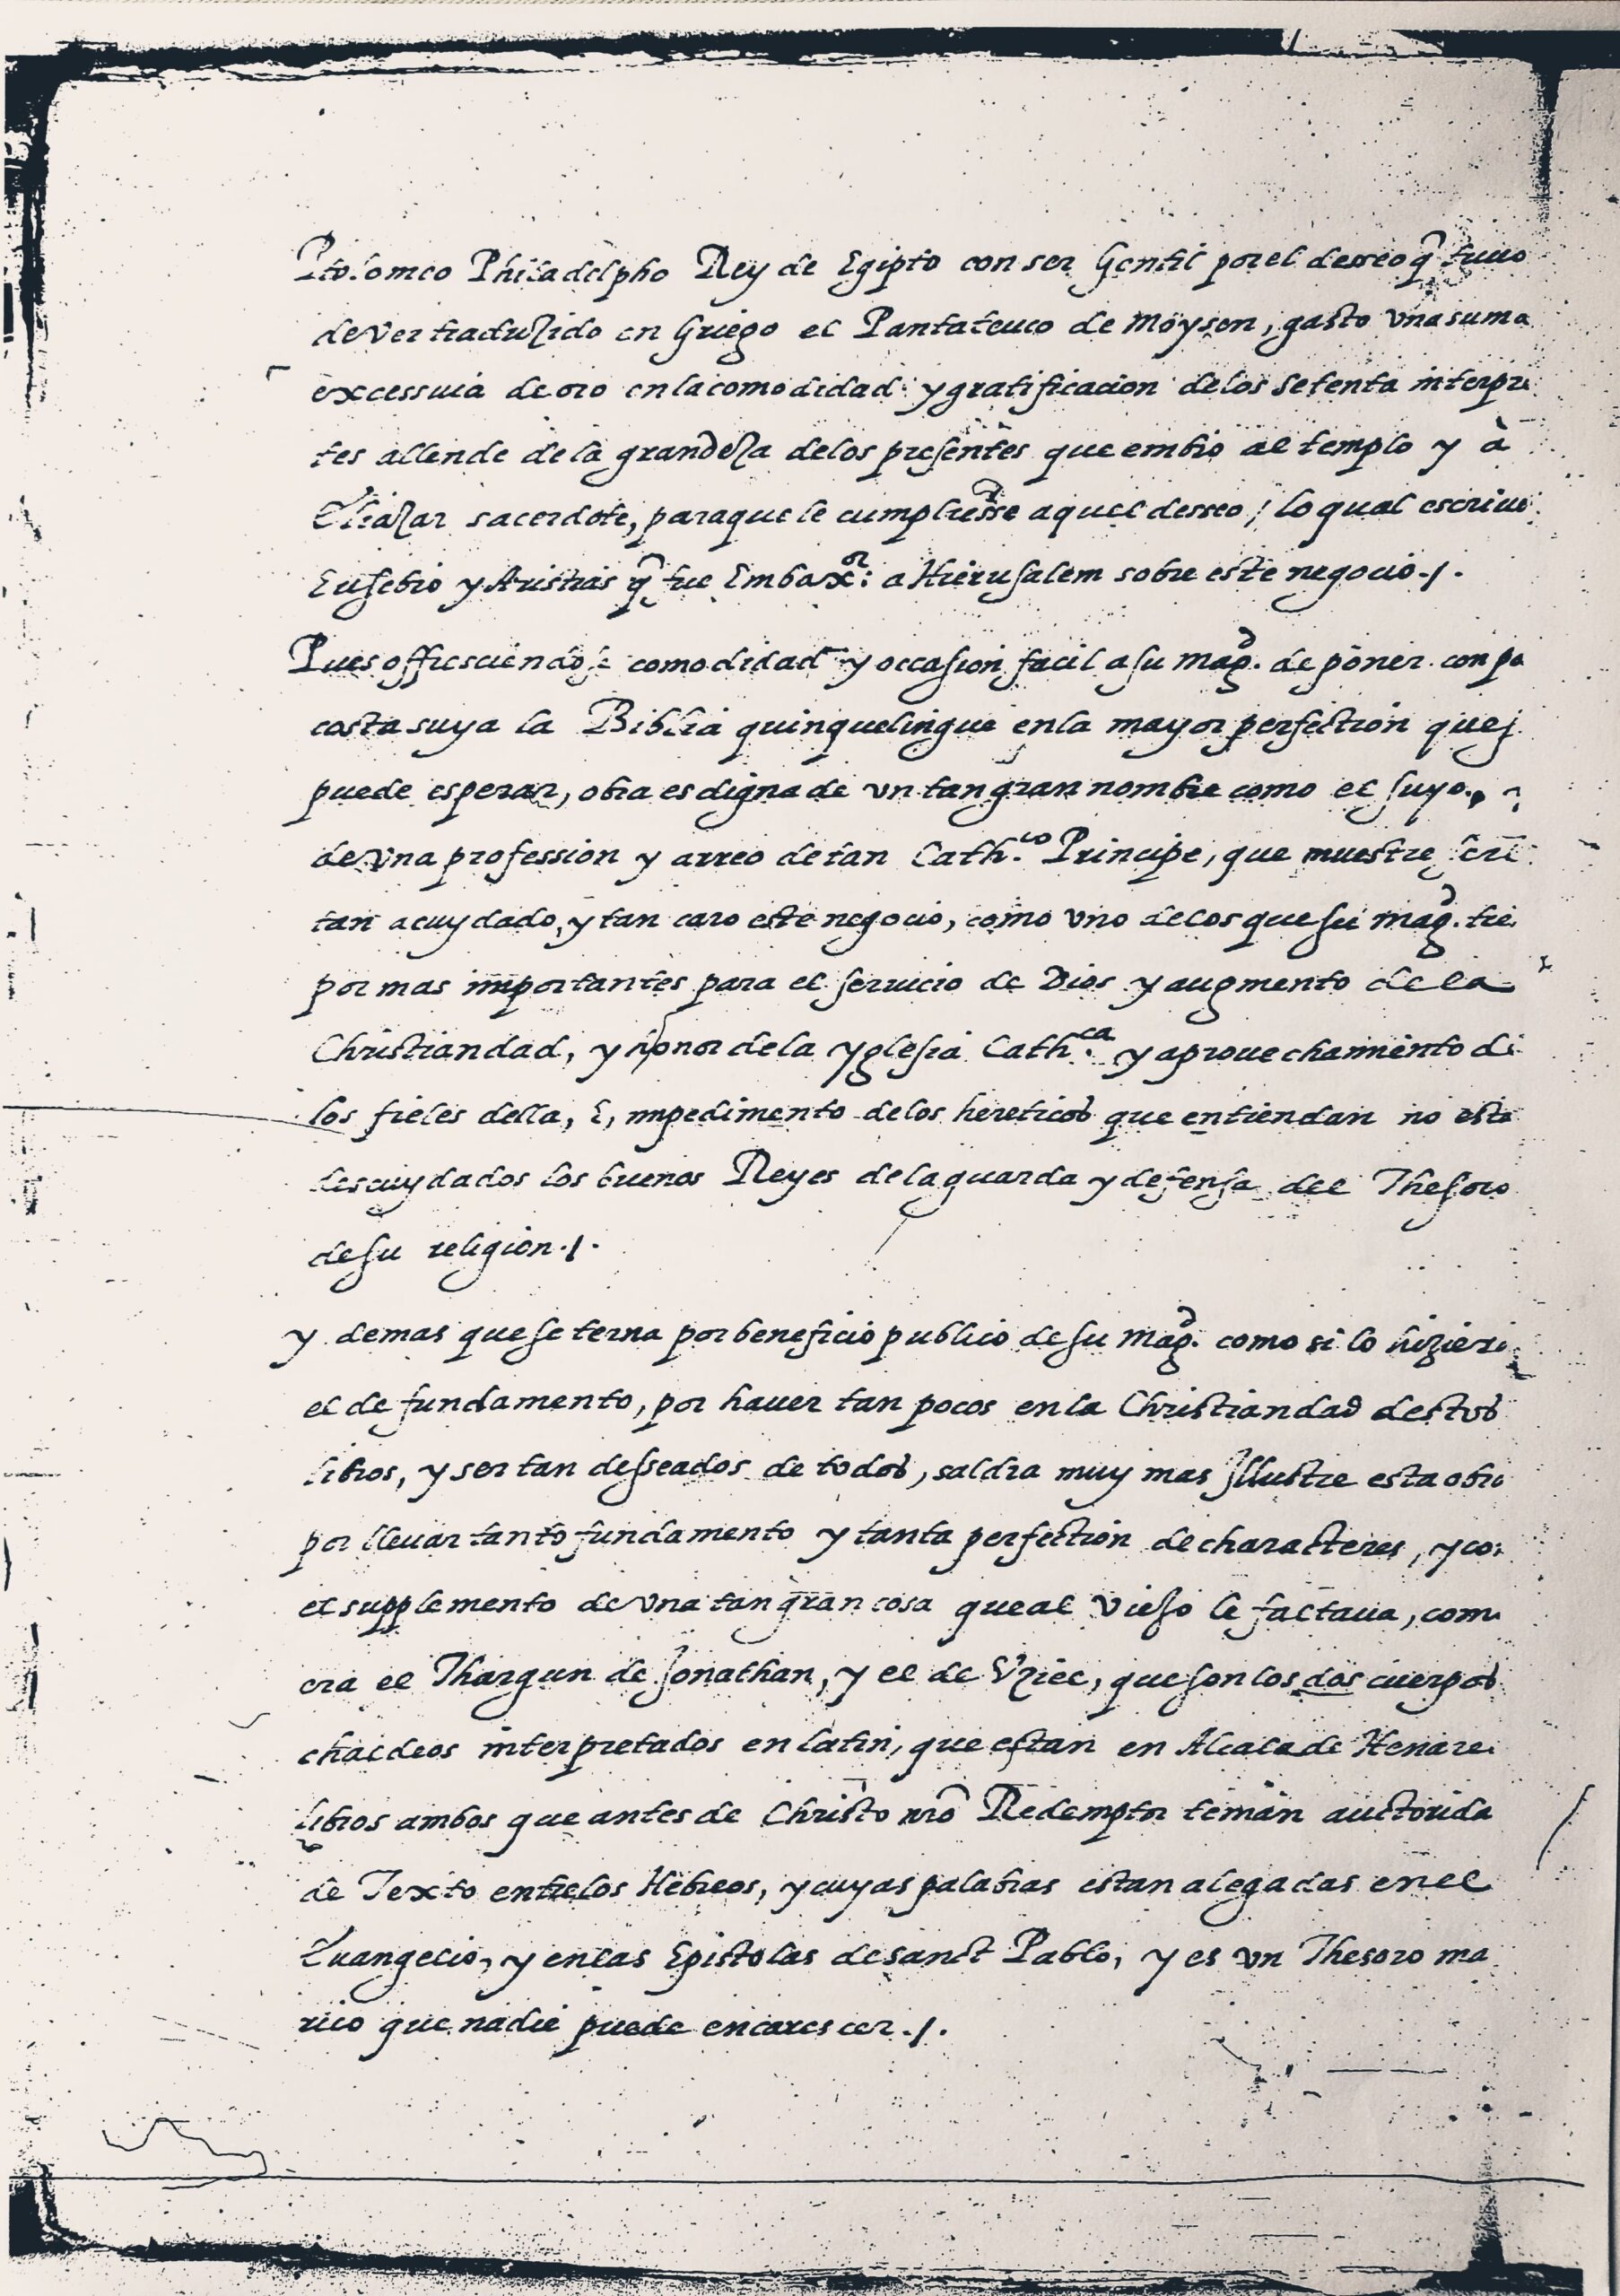 Ptolomeo Philadelpho Rey de Egipto con ser Gentil por el desseo q̃ tuuo
de ver traduzido en Griego el Pantateuco de Moysen, gasto vna suma
excessiua de oro en la comodidad y gratificacion de los setenta interpre
tes allende de la grandeza de los presentes que embio al templo y à
Eliazar sacerdote, para que le cumpliesse aquel desseo, lo qual escriue
Eusebio y Aristias q̃ fue Embaxor: a Hierusalem sobre este negocio./.
Pues offresciendose comodidad y occasion facil a su magd. de poner con po
costa suya la Biblia quinquelingue en la mayor perfection que s
puede esperar, obra es digna de vn tan gran nombre como el suyo,
de vna profession y arreo de tan Cath.co Principe, que muestre
tan a cuydado, y tan caro este negocio, como vno de los que su magd. tie
por mas importantes para el seruicio de Dios y augmento de la
Christiandad, y honor de la yglesia Cath.ca y aprouechamiento de
los fieles della, E, impedimento de los hereticos que entiendan no esta
descuydados los buenos Reyes de la guarda y defensa del Thesoro
de su religion./.
y demas que se terna por beneficio publico de su magd. como si lo hiziera
el de fundamento, por hauer tan pocos en la Christiandad destos
libros, y ser tan desseados de todos, saldra muy mas Illustre esta obra
por lleuar tanto fundamento y tanta perfection de characteres, y co
el supplemento de vna tan gran cosa que al viejo le faltaua, com
era el Thargun de Jonathan, y el de Vziel, que son los dos cuerpos
chaldeos interpretados en latin, que estan en Alcala de Henare
libros ambos que antes de Christo nro Redemptor tenian auctorida
de Texto entre los Hebreos, y cuyas palabras estan alegadas en el
Euangelio, y en las Epistolas de sanct Pablo, y es vn Thesoro ma
rico que nadie puede encarescer./.